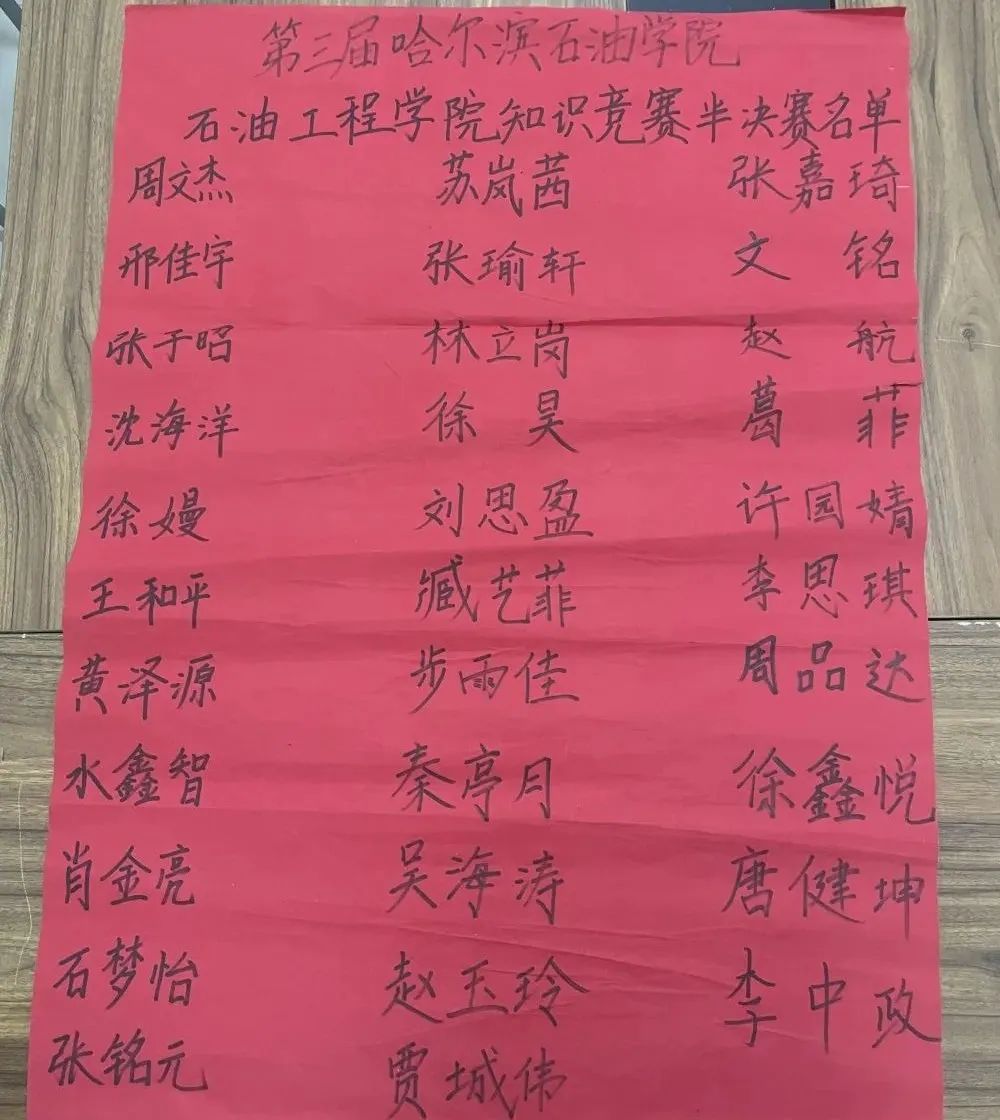 第三届哈尔滨石油学院
石油工程学院知识竞赛半决赛名单
周文杰 苏岚茜 张嘉琦
邢佳宇 张瑜轩 文铭
张于昭 林立岗 赵航
沈海洋 徐昊 葛菲
徐嫚 刘思盈 许园婧
王和平 臧艺菲 李思琪
黄泽源 步雨佳 周品达
水鑫智 秦亭月 徐鑫悦
肖金亮 吴海涛 唐健坤
石梦怡 赵玉玲 李中政
张铭元 贾城伟